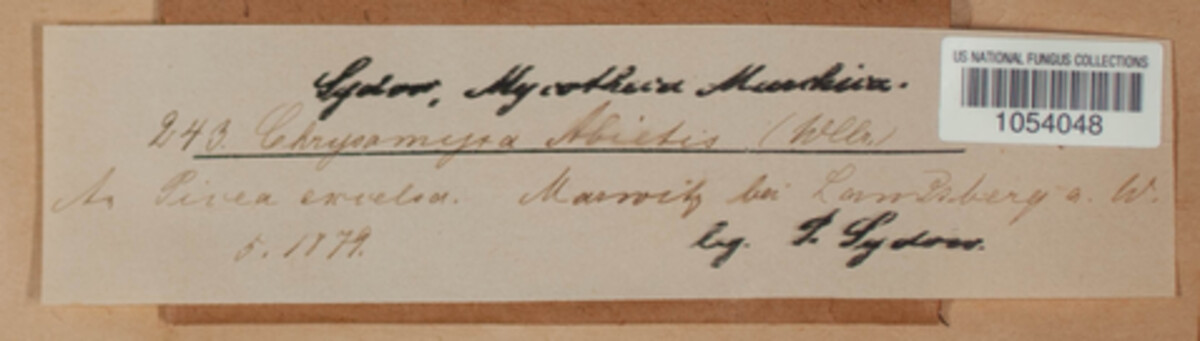 Sydow, Mycotheca Marchica.
US NATIONAL FUNGUS COLLECTIONS
1054048
243. Chrysomyxa Abietis (Wllr.)
An Picea excelsa. Marwitz bei Landsberg a. W.
5. 1879.
leg. P. Sydow.